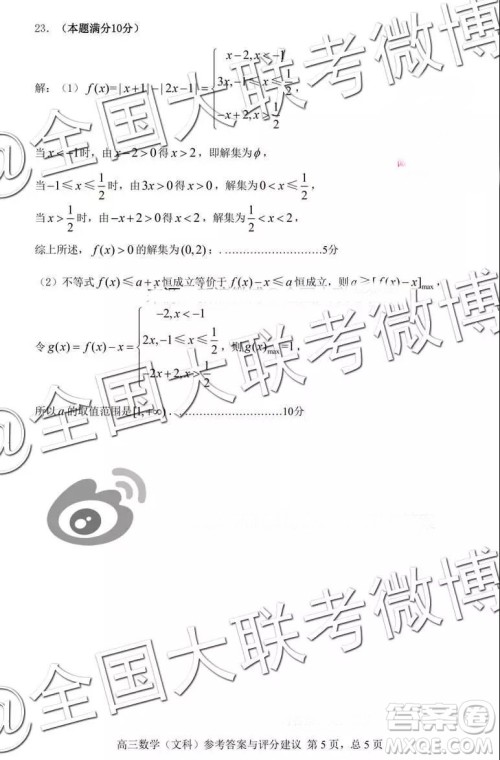 23．（本题满分10分）
解：（1） f(x)=|x+1|-|2x-1|= { x-2, x<-1
3x, -1≤x≤1/2 ,
-x+2, x>1/2
当 x<-1时，由 x-2>0得 x>2，即解集为 ϕ，
当 -1≤x≤1/2 时，由 3x>0得 x>0，解集为 0<x≤1/2，
当 x>1/2 时，由 -x+2>0得 x<2，解集为 1/2<x<2，
综上所述，f(x)>0 的解集为 (0,2)；……………………5分
（2）不等式 f(x)≤a+x恒成立等价于 f(x)-x≤a恒成立，则 a≥[f(x)-x]max，
令 g(x)=f(x)-x= { -2, x<-1
2x, -1≤x≤1/2 ，则g(x)max=1，
-2x+2, x>1/2
所以 a 的取值范围是 [1,+∞)．……………………10分
高三数学（文科）参考答案与评分建议 第 5 页，总 5 页
@全国大联考微博
@全国大联考微博
@全国大联考微博
答案圈